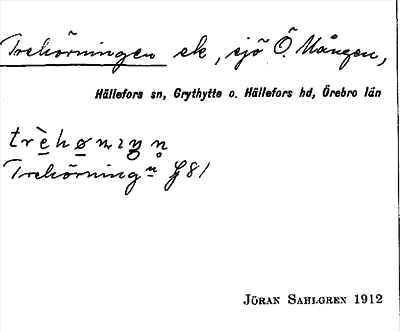 Trehörningen ek, sjö Ö. Mången,
Hällefors sn, Grythytte o. Hällefors hd, Örebro län
trèhønıŋn̥
Trehörningⁿ G81
JÖRAN SAHLGREN 1912